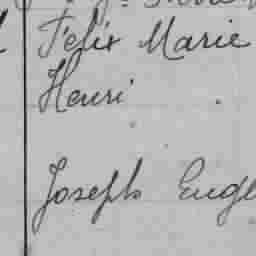 Félix Marie
Henri
Joseph Eug